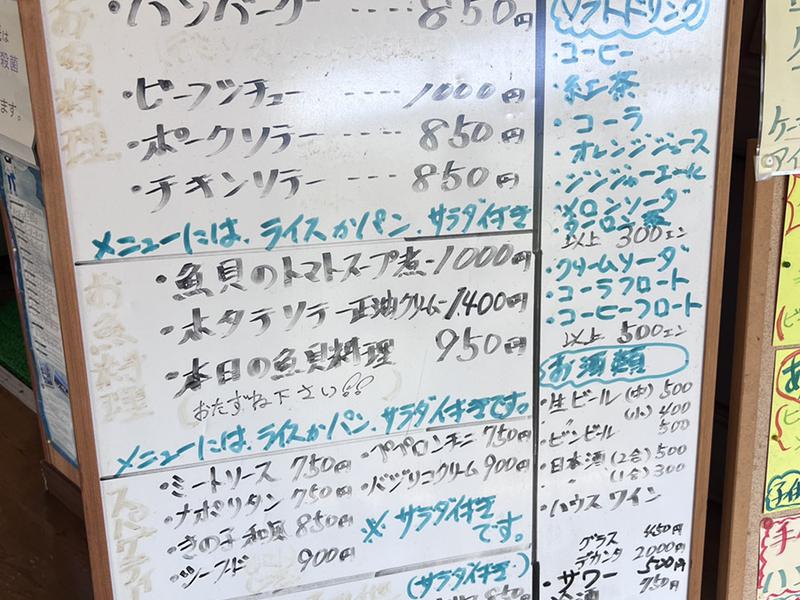 お肉料理
・ハンバーグー ---- 850円
・ビーフシチュー ---- 1000円
・ポークソテー ---- 850円
・チキンソテー ---- 850円
メニューには、ライスかパン、サラダ付き
お魚料理
・魚貝のトマトスープ煮-1000円
・ホタテソテー正油クリーム-1400円
・本日の魚貝料理 950円
(おたずね下さい!!)
メニューには、ライスかパン、サラダ付きです。
スパゲティー
・ミートソース 750円
・ナポリタン 750円
・きの子和風 850円
・シーフード 900円
・ペペロンチーニ 750円
・バジリコクリーム 900円
※ サラダ付き
です。
(サラダ付き)
850円
ソフトドリンク
・コーヒー
・紅茶
・コーラ
・オレンジジュース
・ジンジャーエール
・メロンソーダ
・ウーロン茶
以上 300エン
・クリームソーダ
・コーラフロート
・コーヒーフロート
以上 500エン
お酒類
・生ビール(中) 500
〃 (小) 400
・ビンビール 500
・日本酒(2合) 500
〃 (1合) 300
・ハウスワイン
グラス 450円
デカンタ 2000円
・サワー 500円
酒 750円
殺菌
ます。